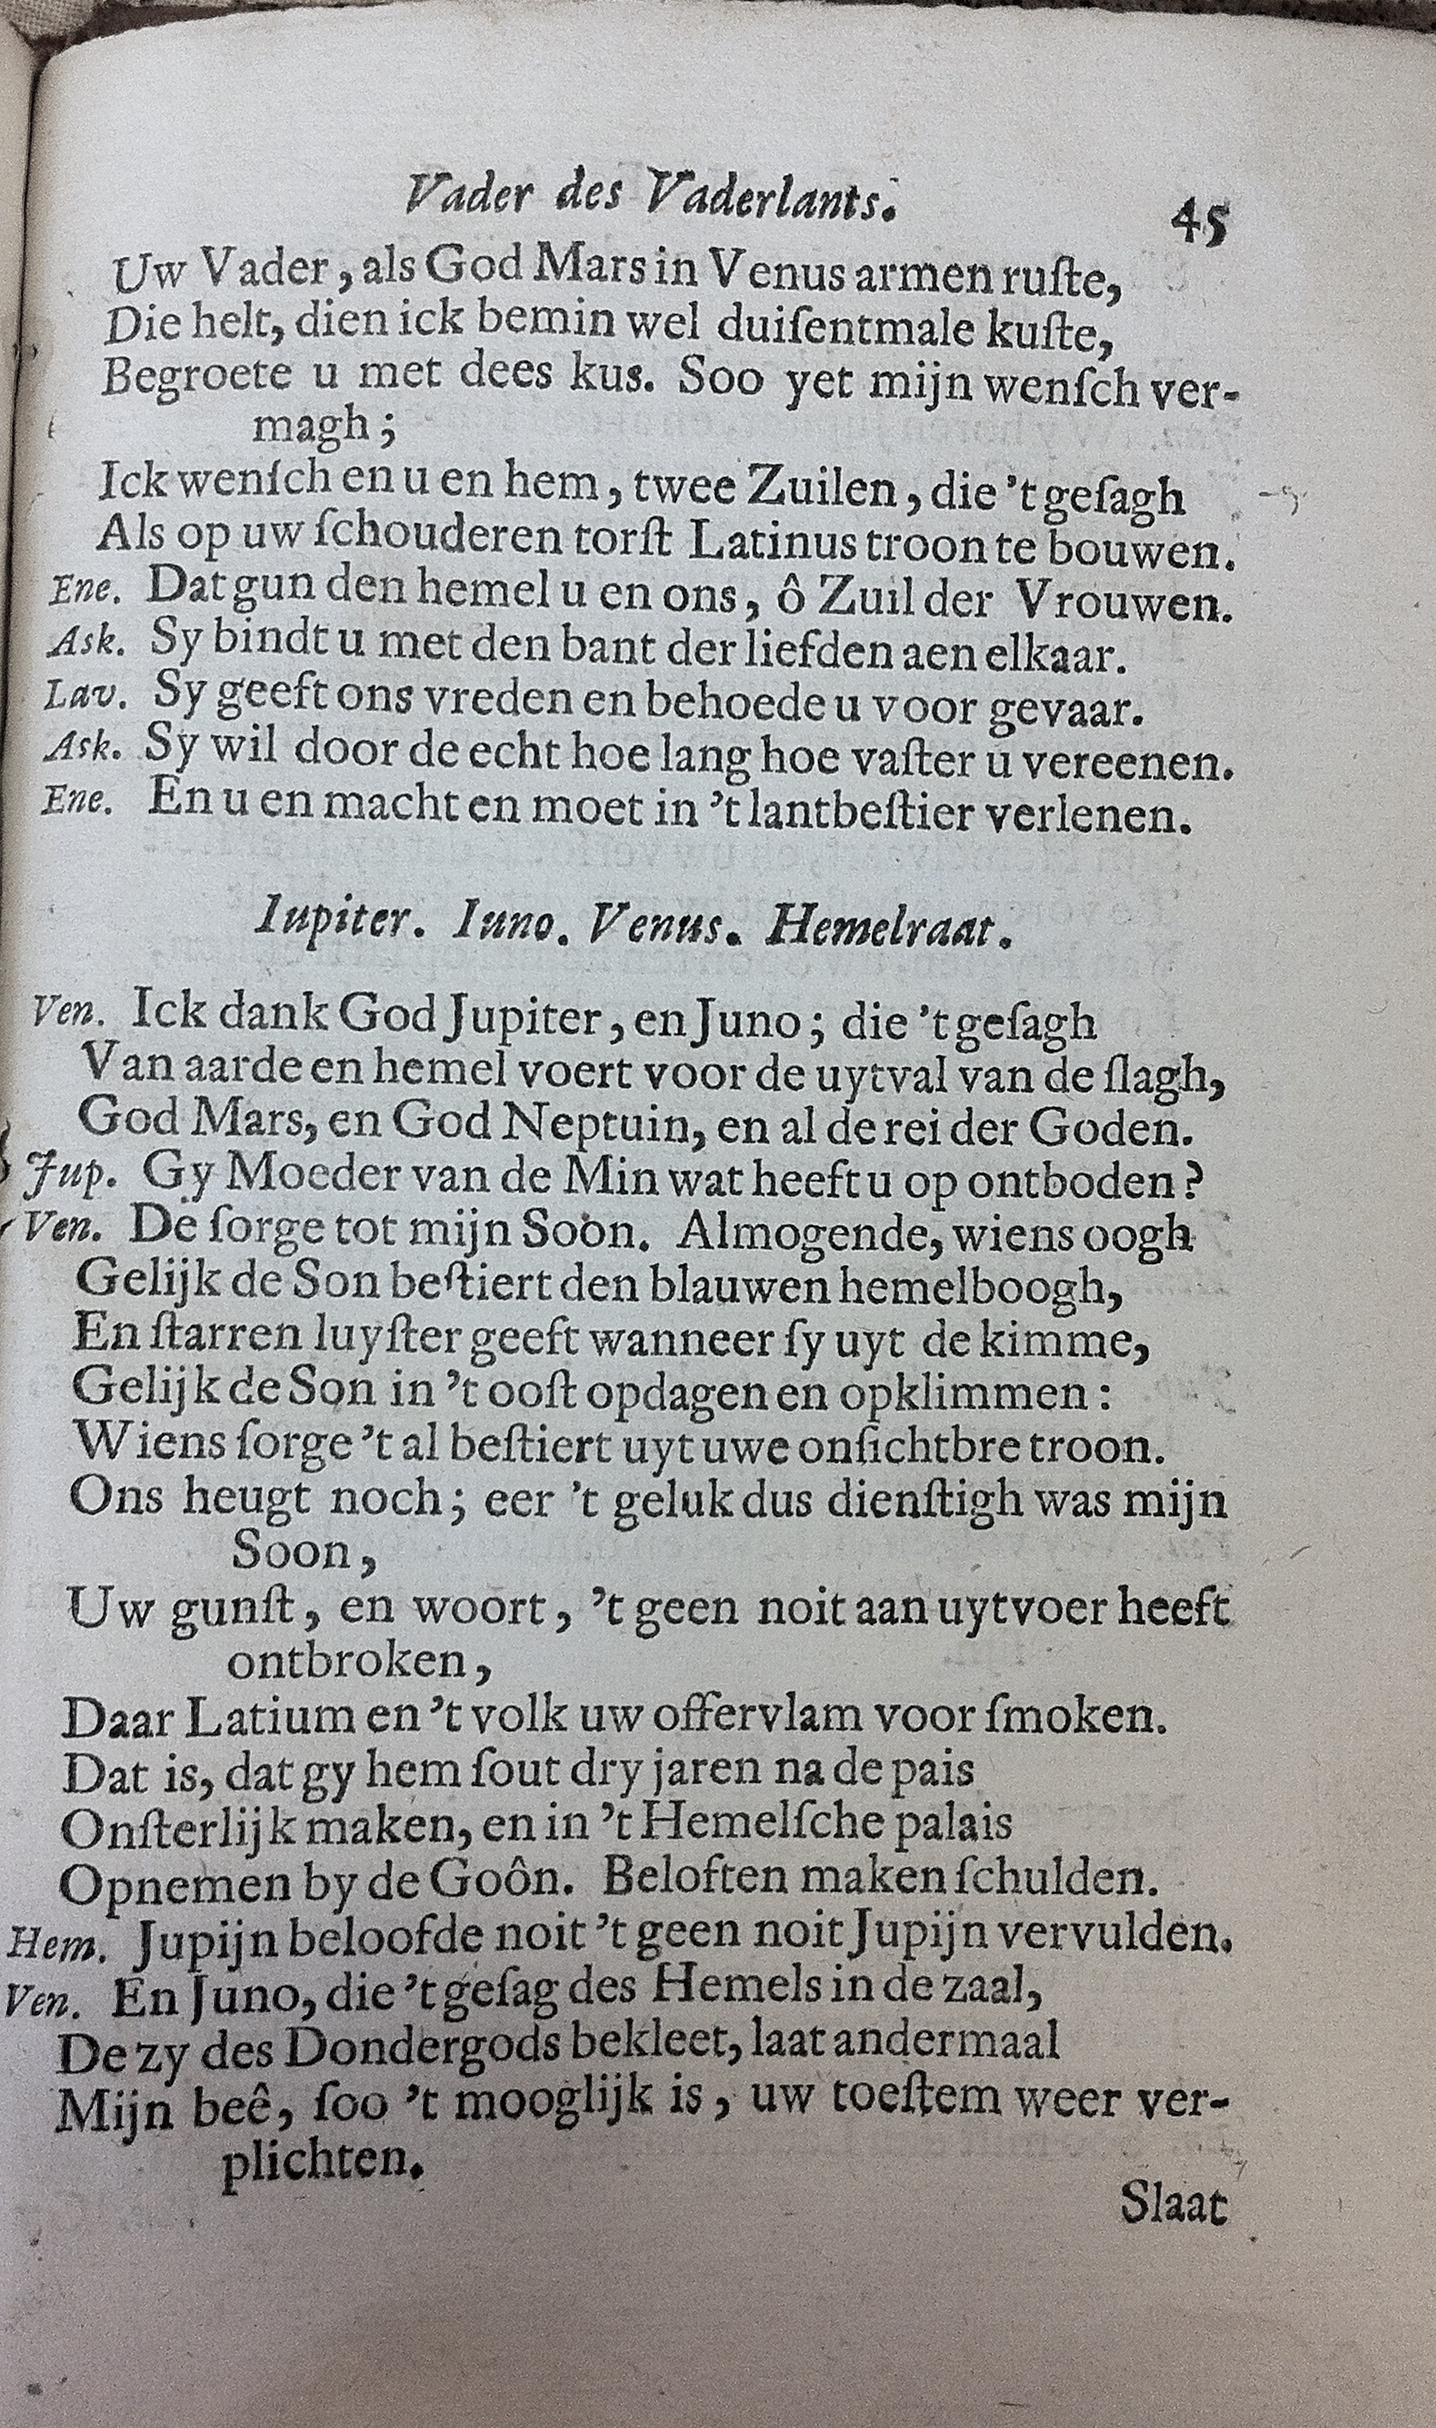 Vader des Vaderlants. 45
Uw Vader, als God Mars in Venus armen ruſte,
Die helt, dien ick bemin wel duiſentmale kuſte,
Begroete u met dees kus. Soo yet mijn wenſch ver-
magh;
Ick wenſch en u en hem, twee Zuilen, die 't geſagh
Als op uw ſchouderen torſt Latinus troon te bouwen.
Ene. Dat gun den hemel u en ons, ô Zuil der Vrouwen.
Ask. Sy bindt u met den bant der liefden aen elkaar.
Lav. Sy geeft ons vreden en behoede u voor gevaar.
Ask. Sy wil door de echt hoe lang hoe vaſter u vereenen.
Ene. En u en macht en moet in 't lantbeſtier verlenen.
Iupiter. Iuno. Venus. Hemelraat.
Ven. Ick dank God Jupiter, en Juno; die 't geſagh
Van aarde en hemel voert voor de uytval van de ſlagh,
God Mars, en God Neptuin, en al de rei der Goden.
Jup. Gy Moeder van de Min wat heeft u op ontboden?
Ven. De ſorge tot mijn Soon. Almogende, wiens oogh
Gelijk de Son beſtiert den blauwen hemelboogh,
En ſtarren luyſter geeft wanneer ſy uyt de kimme,
Gelijk de Son in 't ooſt opdagen en opklimmen:
Wiens ſorge 't al beſtiert uyt uwe onſichtbre troon.
Ons heugt noch; eer 't geluk dus dienſtigh was mijn
Soon,
Uw gunſt, en woort, 't geen noit aan uytvoer heeft
ontbroken,
Daar Latium en 't volk uw offervlam voor ſmoken.
Dat is, dat gy hem ſout dry jaren na de pais
Onſterlijk maken, en in 't Hemelſche palais
Opnemen by de Goôn. Beloften maken ſchulden.
Hem. Jupijn beloofde noit 't geen noit Jupijn vervulden.
Ven. En Juno, die 't geſag des Hemels in de zaal,
De zy des Dondergods bekleet, laat andermaal
Mijn beê, ſoo 't mooglijk is, uw toeſtem weer ver-
plichten.
Slaat